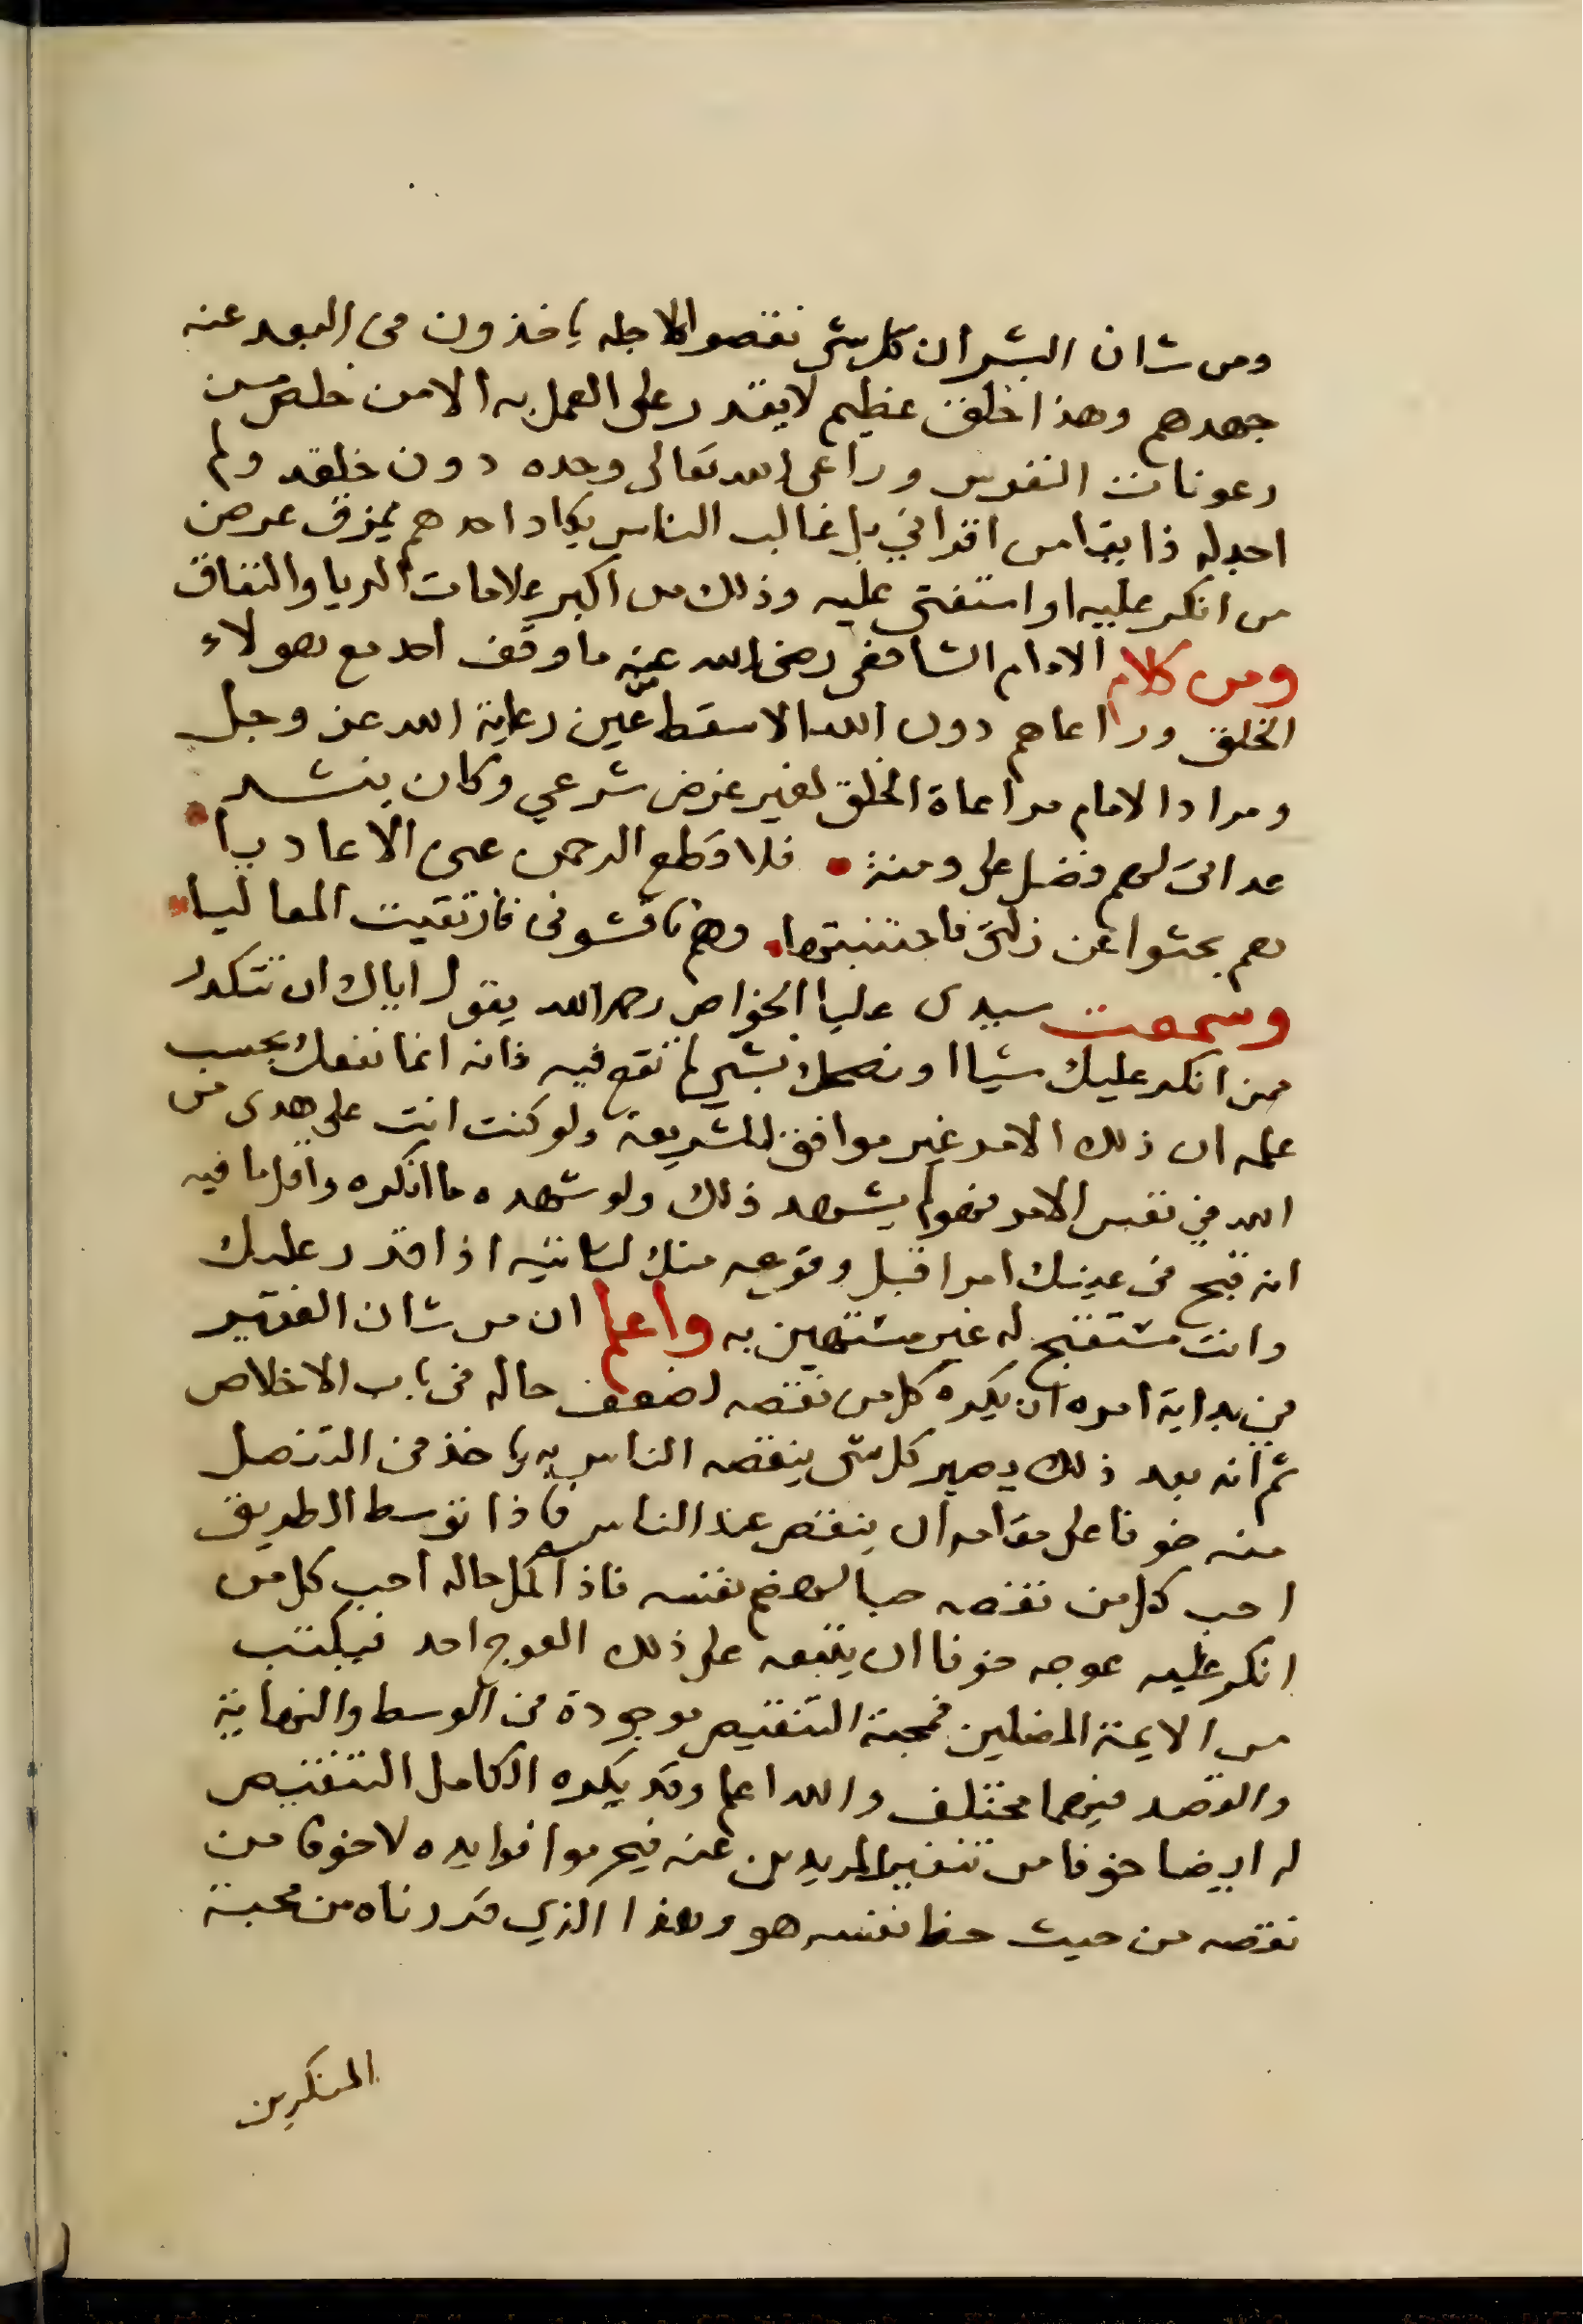 ومن شان البشر ان كل شي نقصوا لاجله ياخذون في البعد عنه
جهدهم وهذا خلق عظيم لا يقدر على العمل به الا من خلص من
رعونات النفوس وراعى الله تعالى وحده دون خلقه ولم
اجد له ذايقا من اقراني بل غالب الناس يكاد احدهم يمزق عرض
من انكر عليه او استفتى عليه وذلك من اكبر علامات الريا والنفاق
ومن كلام الامام الشافعي رضي الله عنه ما وقف احد مع هولاء
الخلق وراعاهم دون الله الا سقط من عين رعاية الله عز وجل
ومراد الامام مراعاة الخلق لغير غرض شرعي وكان ينشد
عداتي لهم فضل علي ومنة • فلا قطع الرحمن عني الاعاديا •
هم بحثوا عن زلتي فاجتنبتها • وهم نافسوني فارتقيت المعاليا •
وسمعت سيدي عليا الخواص رحمه الله يقول اياك ان تتكدر
ممن انكر عليك شيا او نصحك بشي لم تقع فيه فانه انما نفعك بحسب
علمه ان ذلك الامر غير موافق للشريعة ولو كنت انت على هدى من
الله في نفس الامر فهو لم يشهد ذلك ولو شهده ما انكره واقل ما فيه
انه قبح في عينك امرا قبل وقوعه منك لتاتيه اذا قدر عليك
وانت مستقبح له غير مستهين به واعلم ان من شان الفقير
في بداية امره ان يكره كل من نقصه لضعف حاله في باب الاخلاص
ثم انه بعد ذلك يصير كل شي ينقصه الناس به ياخذ في التنصل
منه خوفا على مقامه ان ينقص عند الناس فاذا توسط الطريق
احب كل من نقصه حبا لهضم نفسه فاذا كمل حاله احب كل من
انكر عليه عوجه خوفا ان يتبعه على ذلك العوج احد فيكتب
من الايمة المضلين فمحبة التنقيص موجودة في الوسط والنهاية
والقصد فيهما مختلف والله اعلم وقد يكره الكامل التنقيص
له ايضا خوفا من تنفير المريدين عنه فيحرموا فوايده لا خوفا من
نقصه من حيث حظ نفسه هو وهذا الذي قررناه من محبة
المنكرين